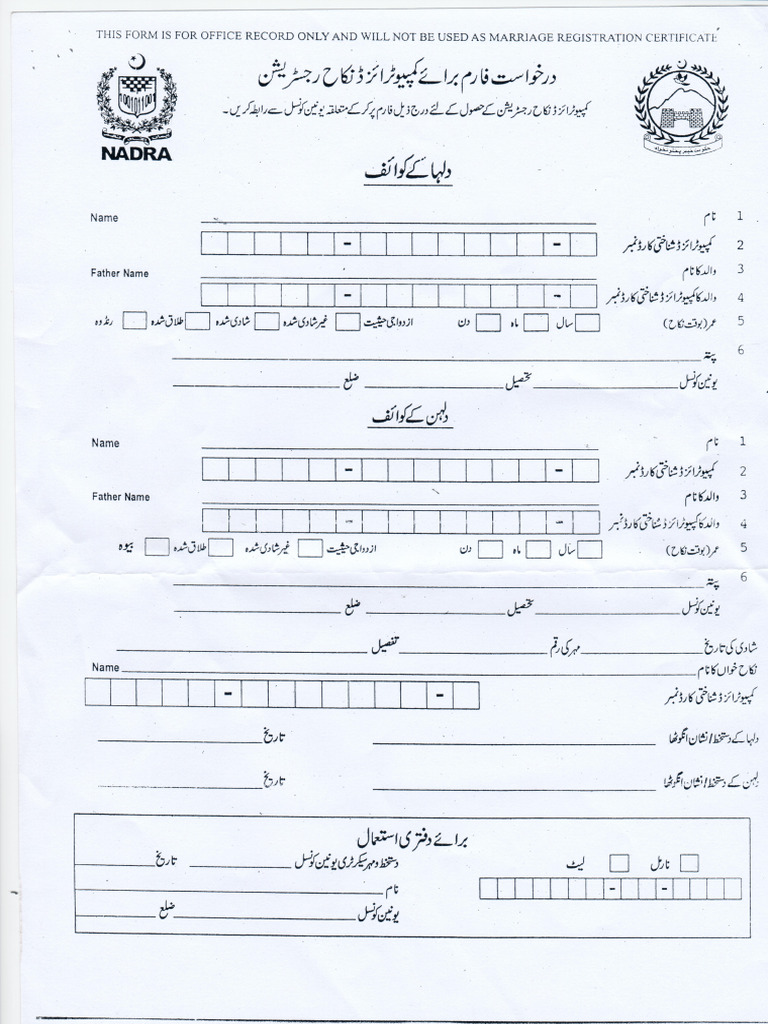 THIS FORM IS FOR OFFICE RECORD ONLY AND WILL NOT BE USED AS MARRIAGE REGISTRATION CERTIFICATE
درخواست فارم برائے کمپیوٹرائزڈ نکاح رجسٹریشن
کمپیوٹرائزڈ نکاح رجسٹریشن کے حصول کے لئے درج ذیل فارم پر کر کے متعلقہ یونین کونسل سے رابطہ کریں۔
NADRA
حکومت خیبر پختونخواہ
دلہا کے کوائف
1 نام Name
2 کمپیوٹرائزڈ شناختی کارڈ نمبر - -
3 والد کا نام Father Name
4 والد کا کمپیوٹرائزڈ شناختی کارڈ نمبر - -
5 عمر (بوقت نکاح) سال ماہ دن ازدواجی حیثیت غیر شادی شدہ شادی شدہ طلاق شدہ رنڈوہ
6 پتہ
یونین کونسل تحصیل ضلع
دلہن کے کوائف
1 نام Name
2 کمپیوٹرائزڈ شناختی کارڈ نمبر - -
3 والد کا نام Father Name
4 والد کا کمپیوٹرائزڈ شناختی کارڈ نمبر - -
5 عمر (بوقت نکاح) سال ماہ دن ازدواجی حیثیت غیر شادی شدہ طلاق شدہ بیوہ
6 پتہ
یونین کونسل تحصیل ضلع
شادی کی تاریخ مہر کی رقم تفصیل
نکاح خواں کا نام Name
کمپیوٹرائزڈ شناختی کارڈ نمبر - -
دلہا کے دستخط/نشان انگوٹھا تاریخ
دلہن کے دستخط/نشان انگوٹھا تاریخ
برائے دفتری استعمال
نارمل لیٹ دستخط و مہر سیکرٹری یونین کونسل تاریخ
- - نام
یونین کونسل ضلع